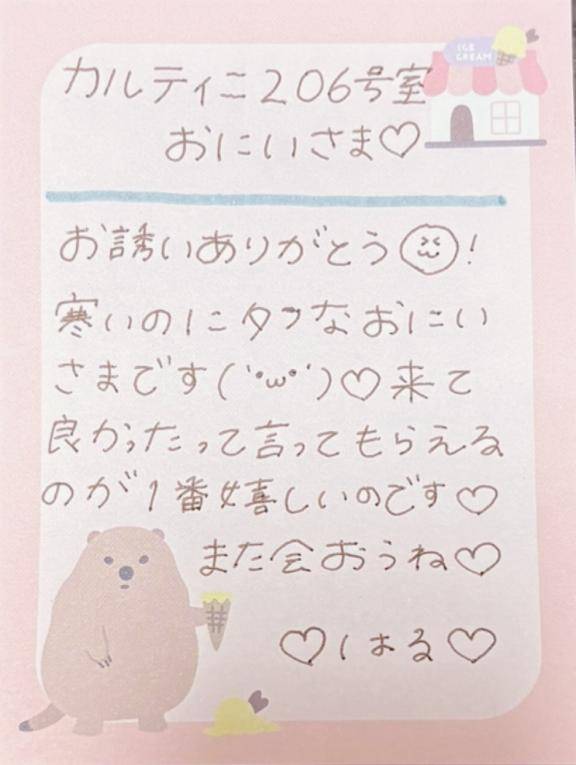 カルティニ206号室
おにいさま♡
お誘いありがとう!
寒いのにタフなおにい
さまです(´•ω•`)♡来て
良かったって言ってもらえる
のが1番嬉しいのです♡
また会おうね♡
♡はる♡
ICE
CREAM